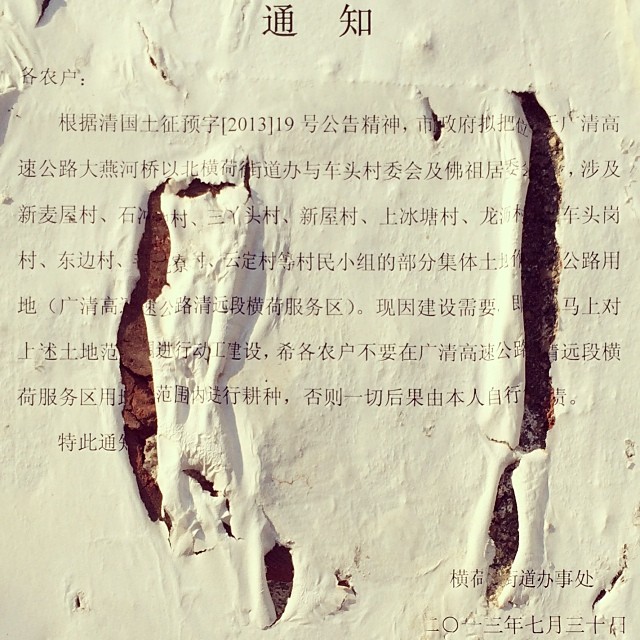 通 知
各农户：
根据清国土征预字[2013]19 号公告精神，市政府拟把 广清高
速公路大燕河桥以北横荷街道办与车头村委会及佛祖居委 ，涉及
新麦屋村、石 村、三丫头村、新屋村、上冰塘村、龙 车头岗
村、东边村、 寮村、云定村等村民小组的部分集体土地 公路用
地（广清高速公路清远段横荷服务区）。现因建设需要，即 马上对
上述土地范 进行动工建设，希各农户不要在广清高速公路清远段横
荷服务区用地范围内进行耕种，否则一切后果由本人自行 责。
特此通知
横荷街道办事处
二〇一三年七月三十日